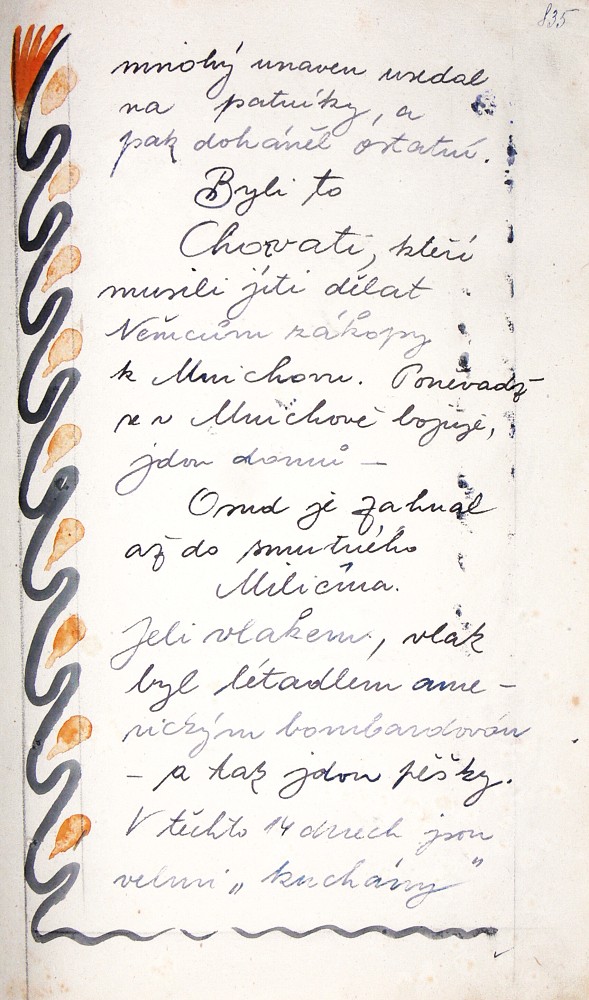 835
mnohý unaven usedal
na patníky, a
pak doháněl ostatní.
Byli to
Chorvati, kteří
musili jíti dělat
Němcům zákopy
k Mnichovu. Poněvadž
se v Mnichově bojuje,
jdou domů –
Osud je zahnal
až do smutného
Miličína.
Jeli vlakem, vlak
byl létadlem ame-
rickým bombardován
– a tak jdou pěšky.
V těchto 14 dnech jsou
velmi „kuchány"